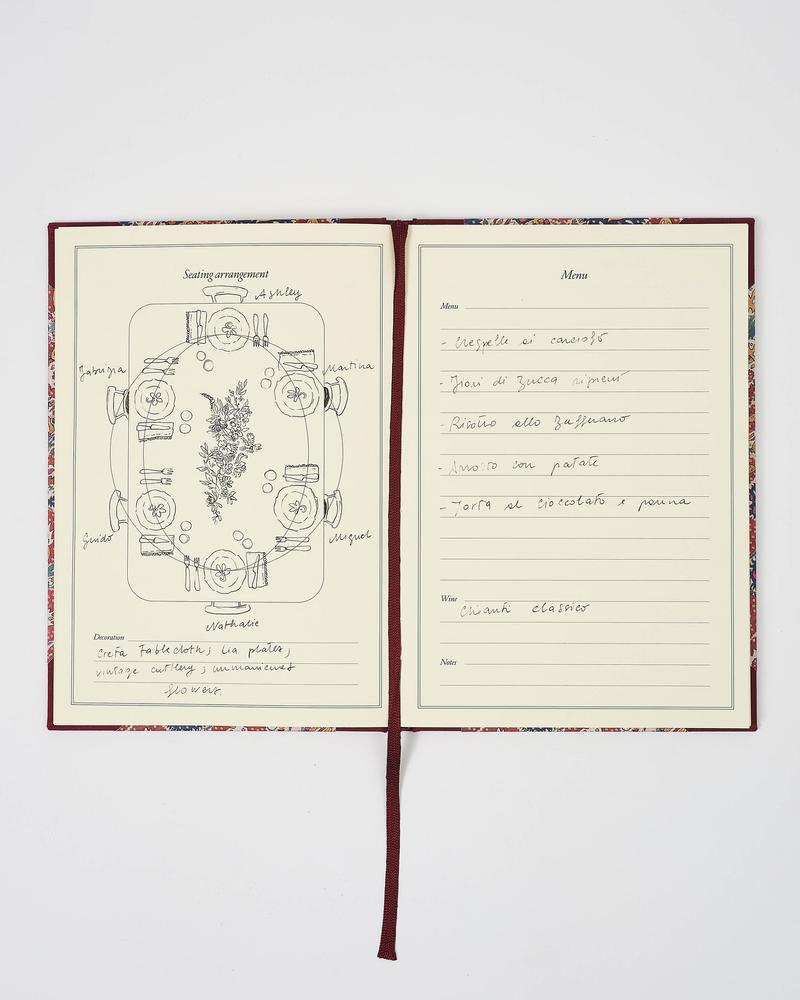 Seating arrangement
Ashley
Fabrizia
Martina
Guido
Miguel
Nathalie
Decoration
Creta Tablecloth; Lia plates;
vintage cutlery; unmanicured
flowers.
Menu
Menu
- Crespelle ai carciofi
- Fiori di Zucca ripieni
- Risotto allo Zafferano
- Arrosto con patate
- Torta al cioccolato e panna
Wine
Chianti classico
Notes